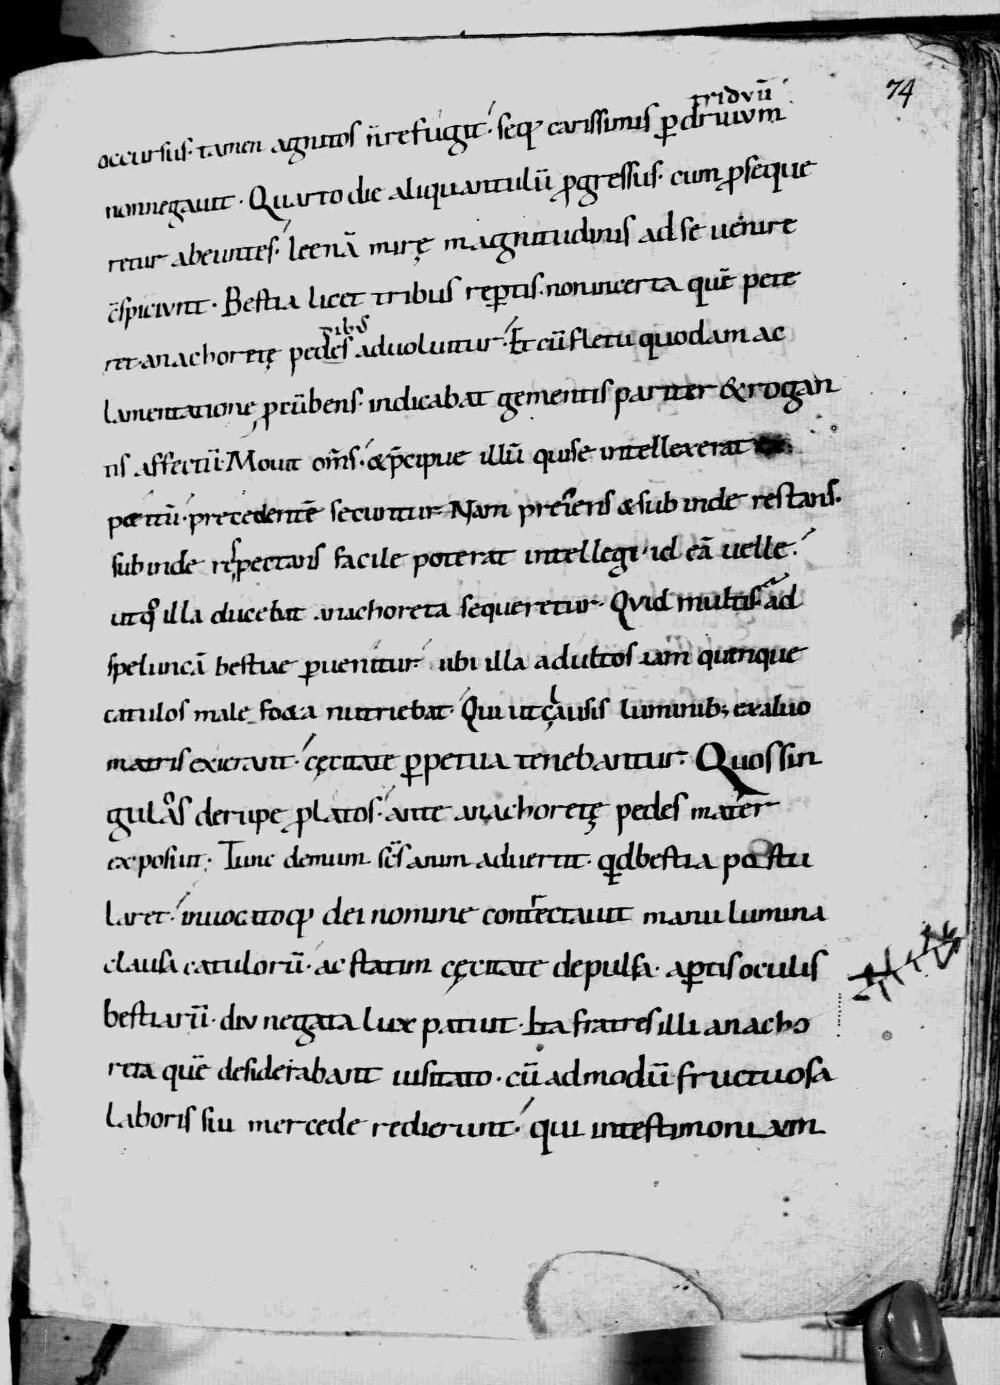 74
triduū
occursus· tamen agnitos n̄ refugit· seq; carissimis ꝑ druium
non negauit· Quarto die aliquantulū ꝓgressus· cum ꝓseque
retur abeuntes· leenā mirę magnitudinis ad se uenire
c̄spiciunt· Bestia licet tribus reꝑtis· non incerta quē pete
ret· anachoretę pedes aduoluitur· Et cū fletu quodam ac
lamentatione ꝓcūbens· indicabat gementis pariter & rogan
tis affectū· Mouit om̄s· & p̄cipue illū qui se intellexerat
petitū· precedentē secuntur· Nam preiens & subinde restans·
subinde respectans facile poterat intellegi· id eā uelle·
ut quo illa ducebat anachoreta sequeretur· Quid multis· ad
speluncā bestiae ꝑuenitur· ubi illa adultos iam quinque
catulos male foeta nutriebat· Qui ut clausis luminib; ex aluo
matris exierant· cęcitate ꝑpetua tenebantur· Quos sin
gulos de rupe ꝓlatos· ante anachoretę pedes mater
exposuit· Tunc demum sc̄s animaduertit· qd bestia postu
laret· inuocatoq; dei nomine contrectauit manu lumina
clausa catulorū· ac statim cęcitate depulsa· aꝑtis oculis
bestiarū· diu negata lux patuit· Ita fratres illi anacho
reta quē desiderabant uisitato· cū admodū fructuosa
laboris sui mercede redierunt· qui in testimonium